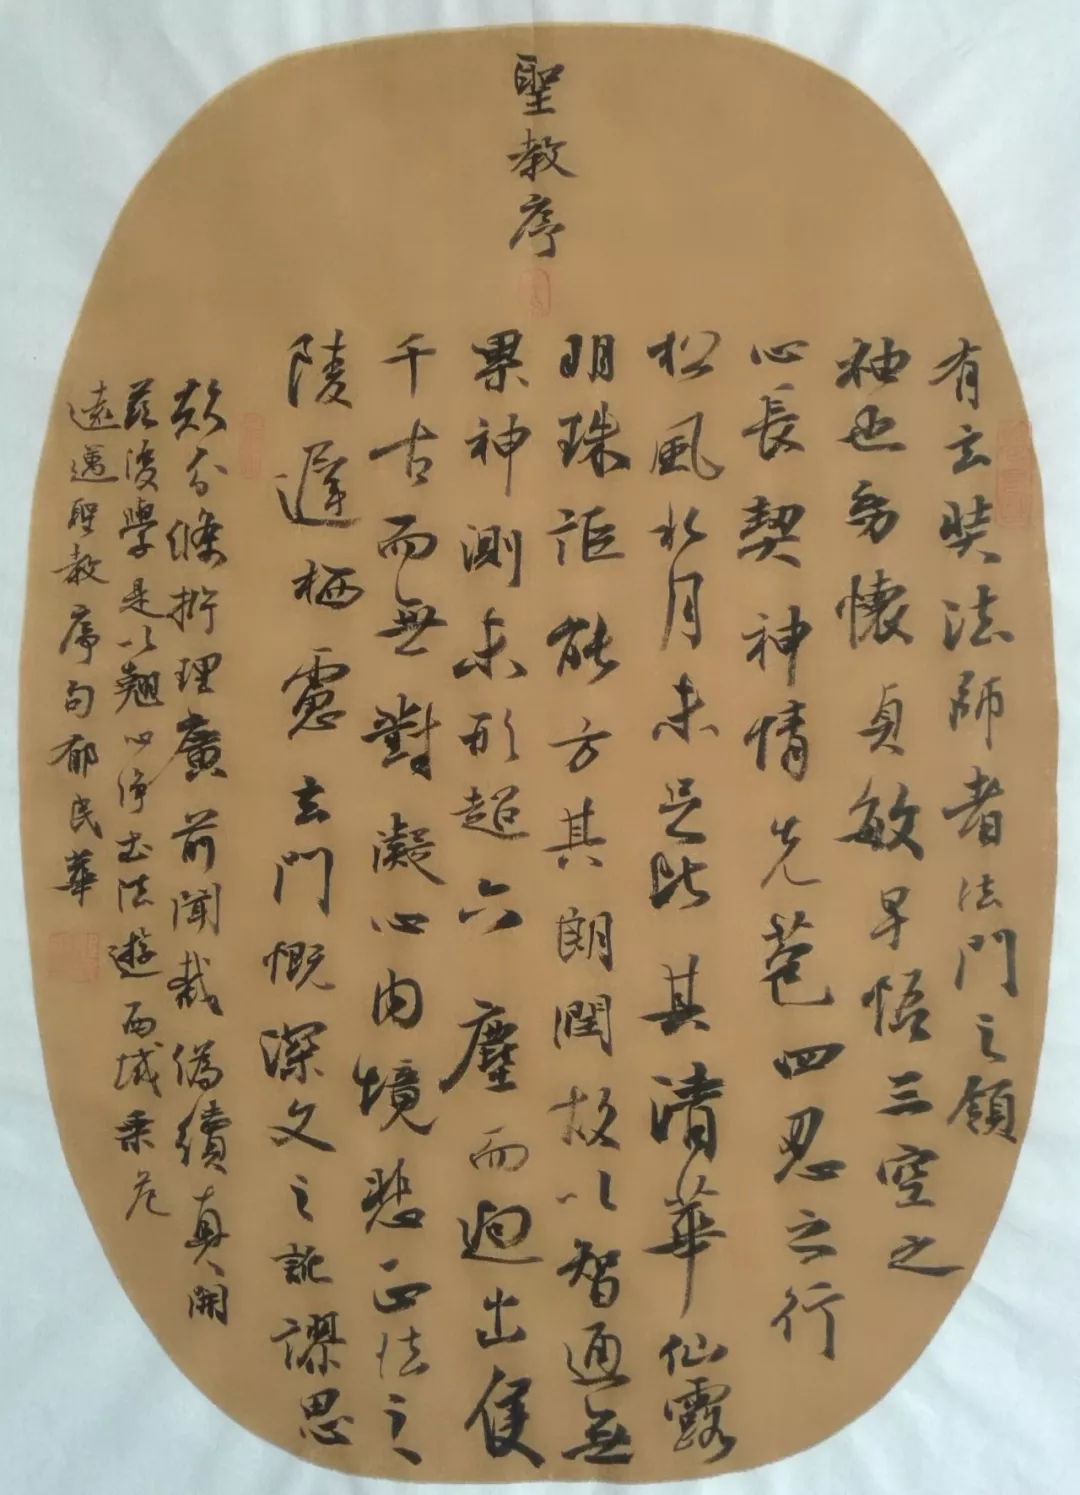 聖教序
有玄奘法師者法門之領
袖也幼懷貞敏早悟三空之
心長契神情先苞四忍之行
松風水月未足比其清華仙露
明珠詎能方其朗潤故以智通無
累神測未形超六塵而迥出隻
千古而無對凝心內境悲正法之
陵遲栖慮玄門慨深文之訛謬思
欲分條析理廣前聞截偽續真開
茲後學是以翹心淨土法遊西域乘危
遠邁聖教序句郁民華